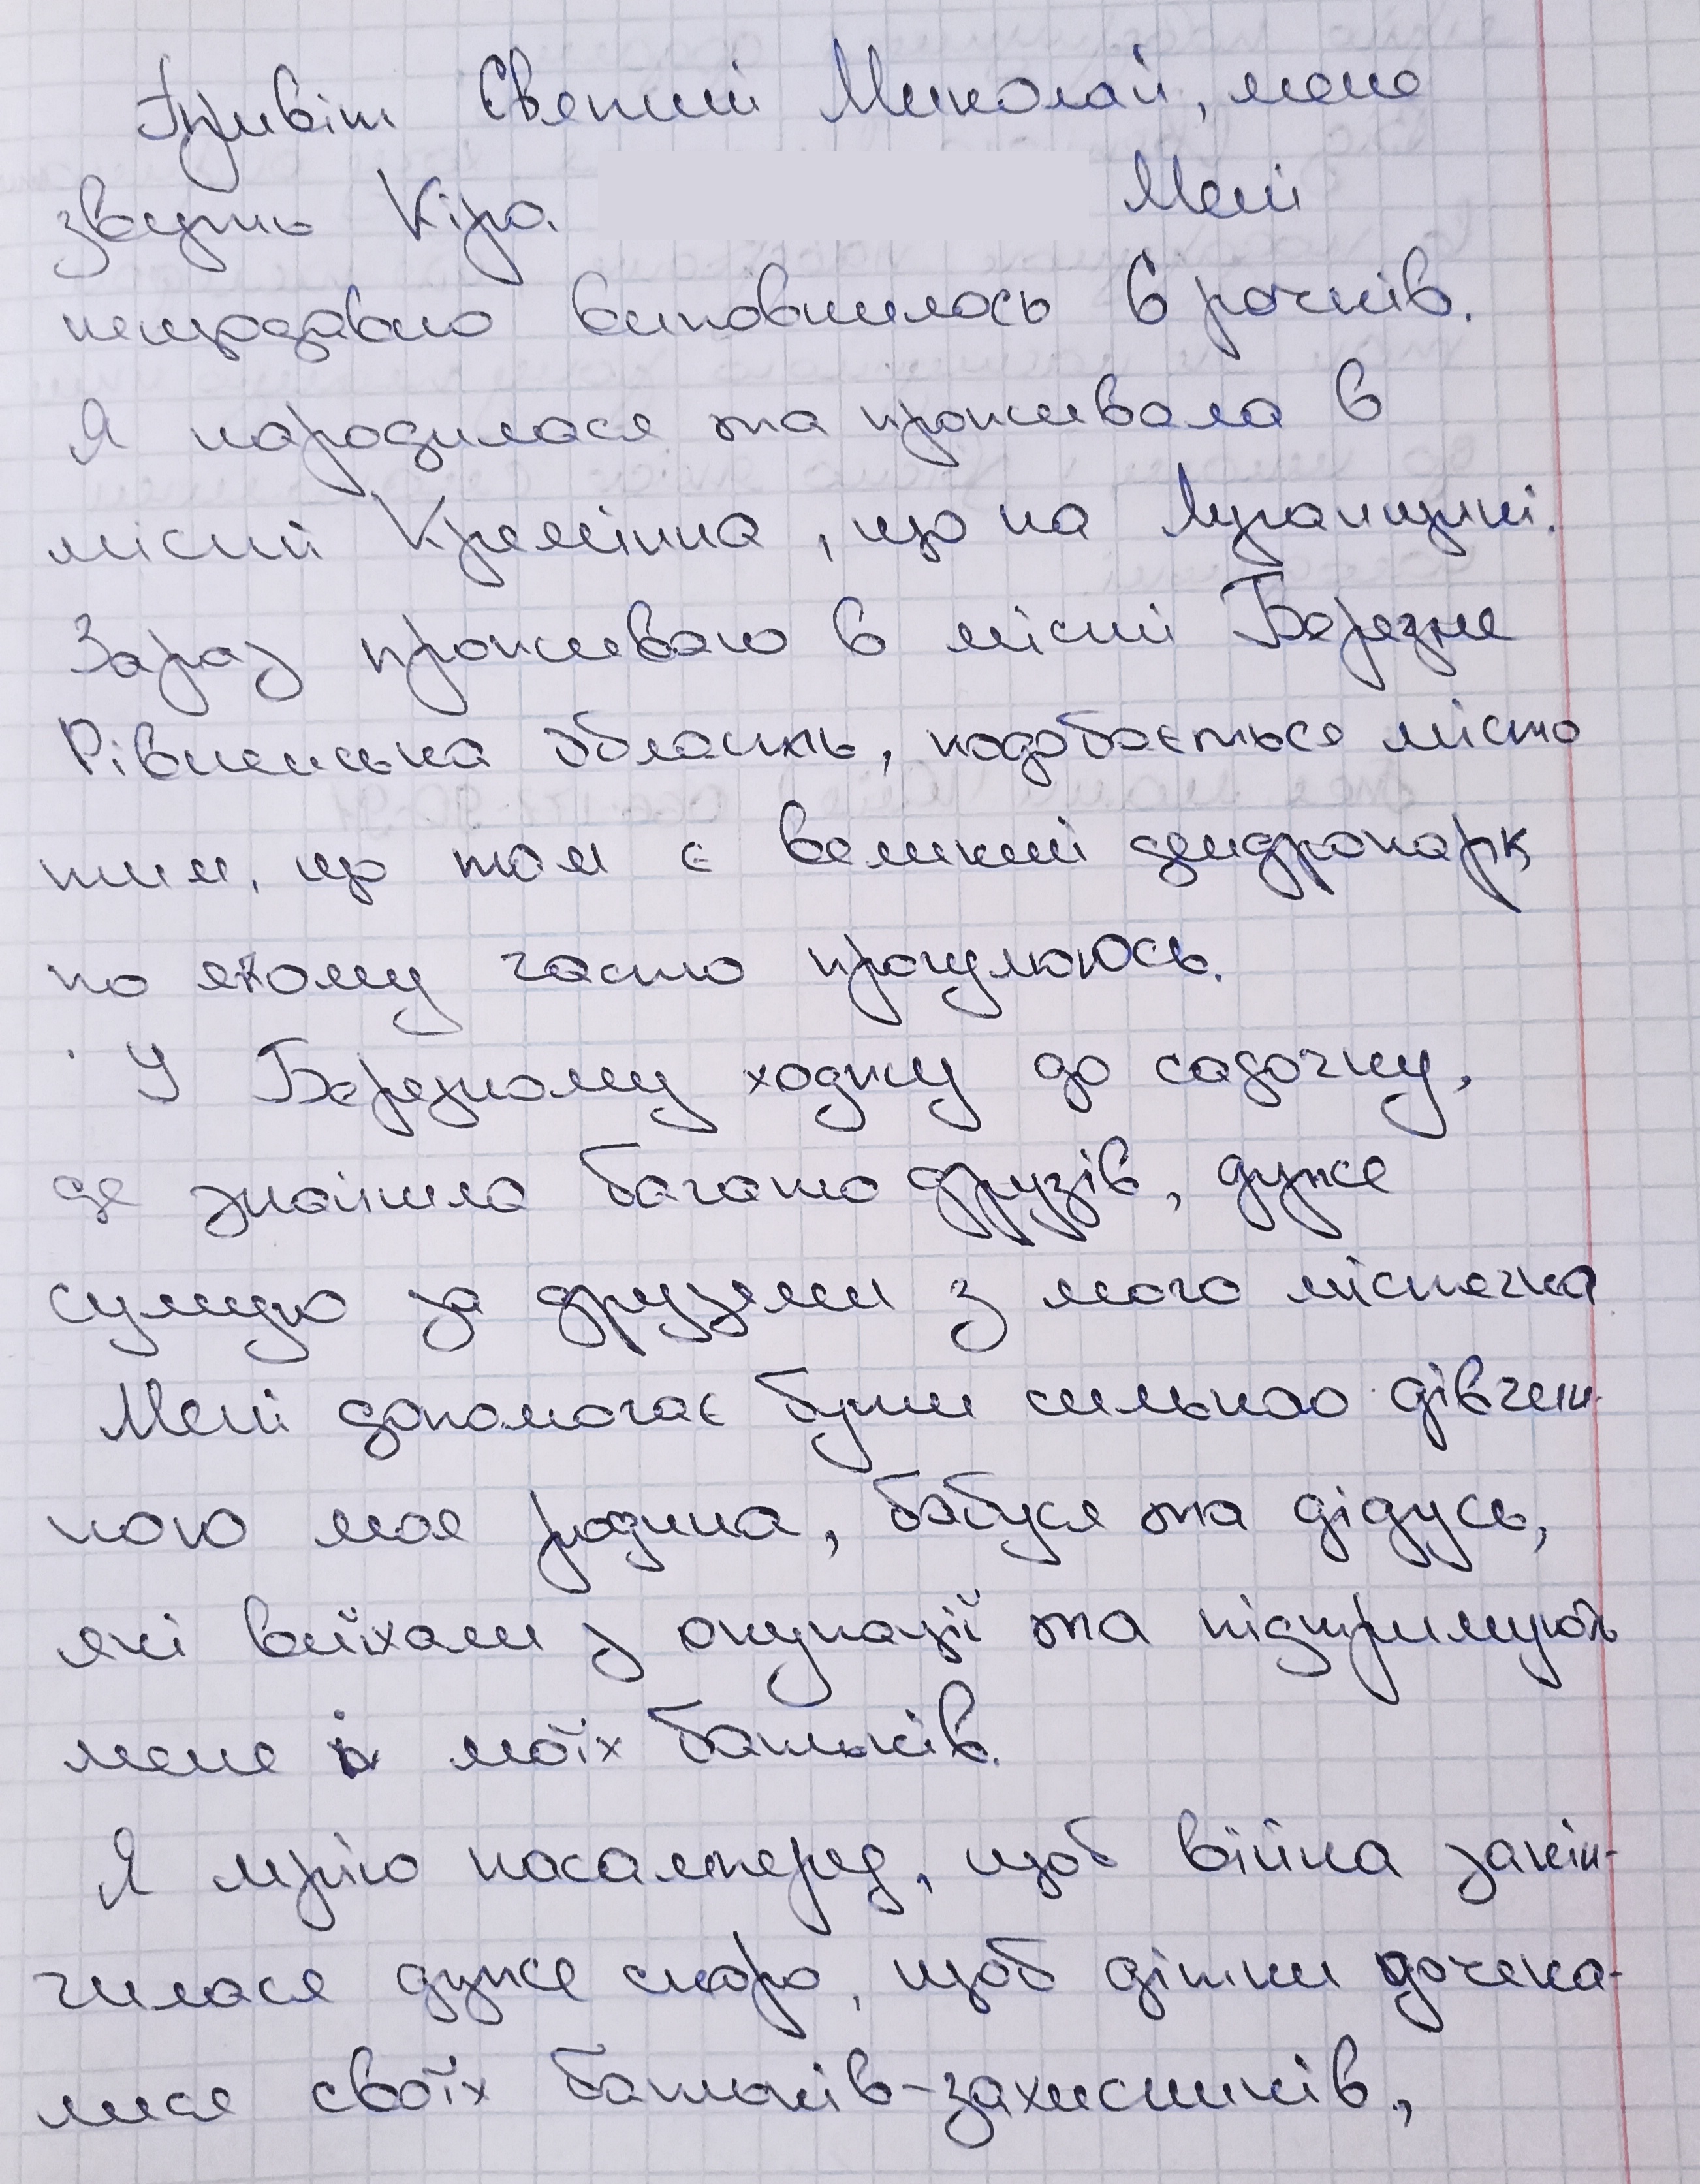 Привіт Святий Миколай, мене
звуть Кіра Мені
нещодавно виповнилось 6 рочків.
Я народилася та проживала в
місті Кремінна, що на Луганщині.
Зараз проживаю в місті Березне
Рівненська область, подобається місто
тим, що там є великий дендропарк
по якому часто прогулююсь.
У Березному ходжу до садочку,
де знайшла багато друзів, дуже
сумую за друзями з мого містечка
Мені допомагає бути сильною дівчин-
ною моя родина, бабуся та дідусь,
які виїхали з окупації та підтримують
мене і моїх батьків.
Я мрію насамперед, щоб війна закін-
чилася дуже скоро, щоб дітки дочека-
лися своїх батьків-захисників,